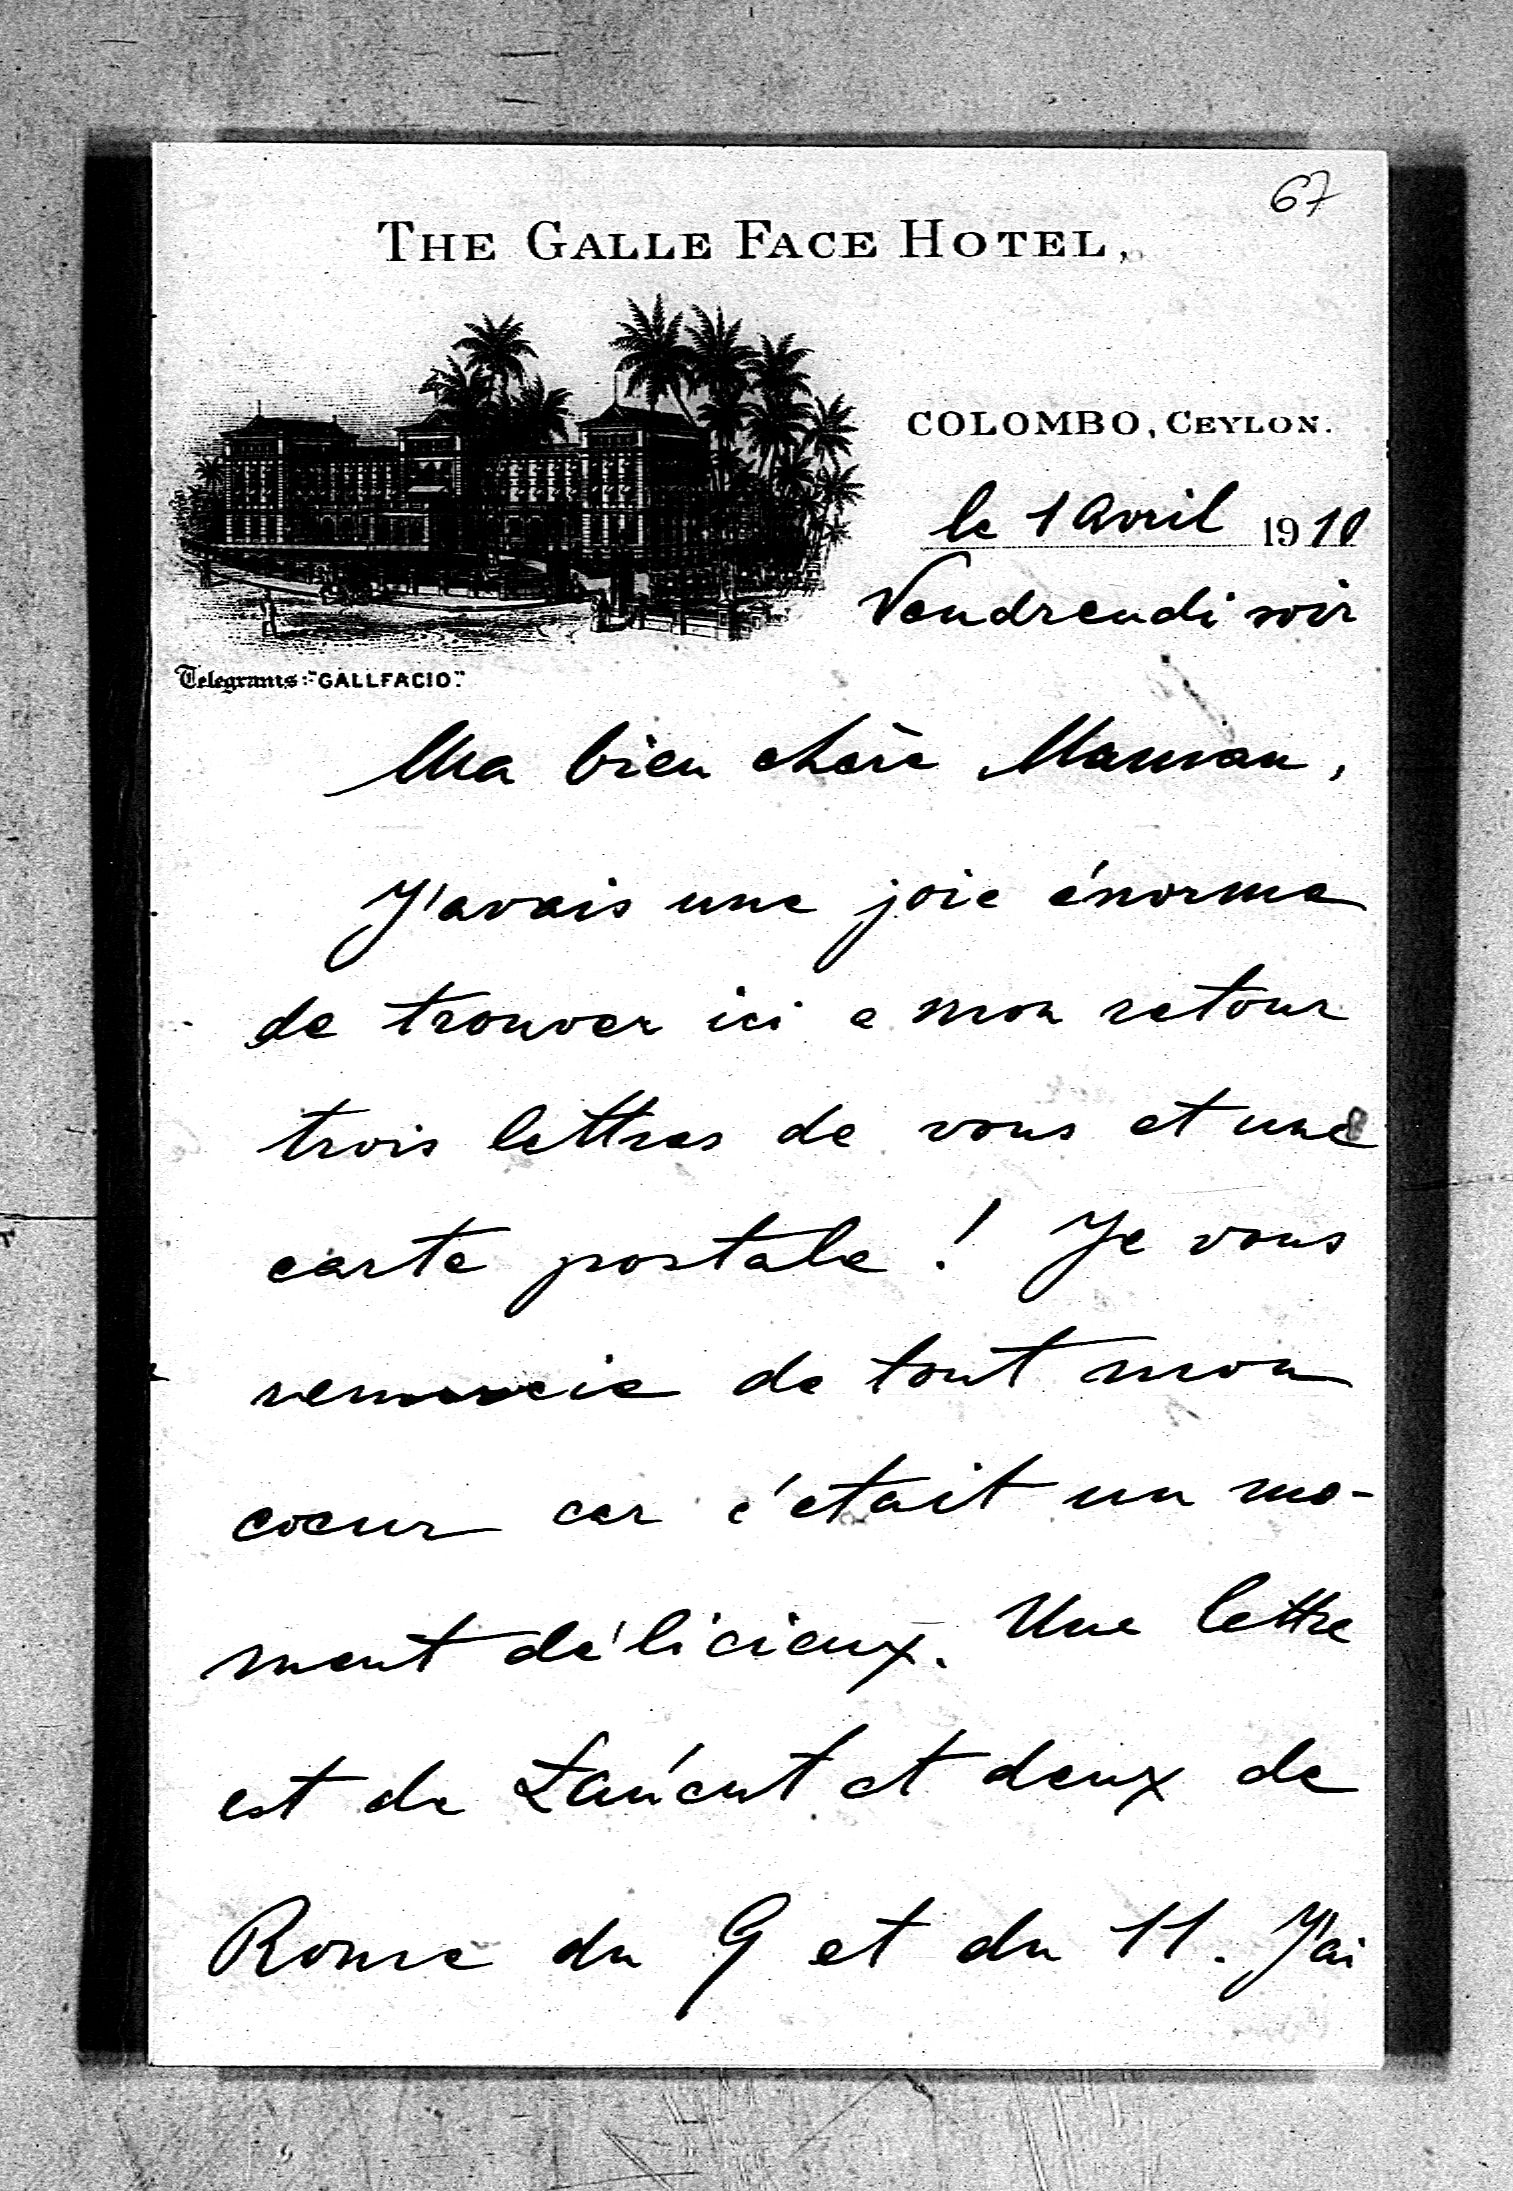 67
THE GALLE FACE HOTEL,
COLOMBO, CEYLON.
le 1 Avril 1910
Vendrendi soir
Telegrams: "GALLFACIO".
Ma bien chère Maman,
J'avais une joie énorme
de trouver ici a mon retour
trois lettres de vous et une
carte postale! Je vous
remercie de tout mon
coeur car c'etait un mo-
ment délicieux. Une lettre
est de et deux de
Rome du 9 et du 11. J'ai